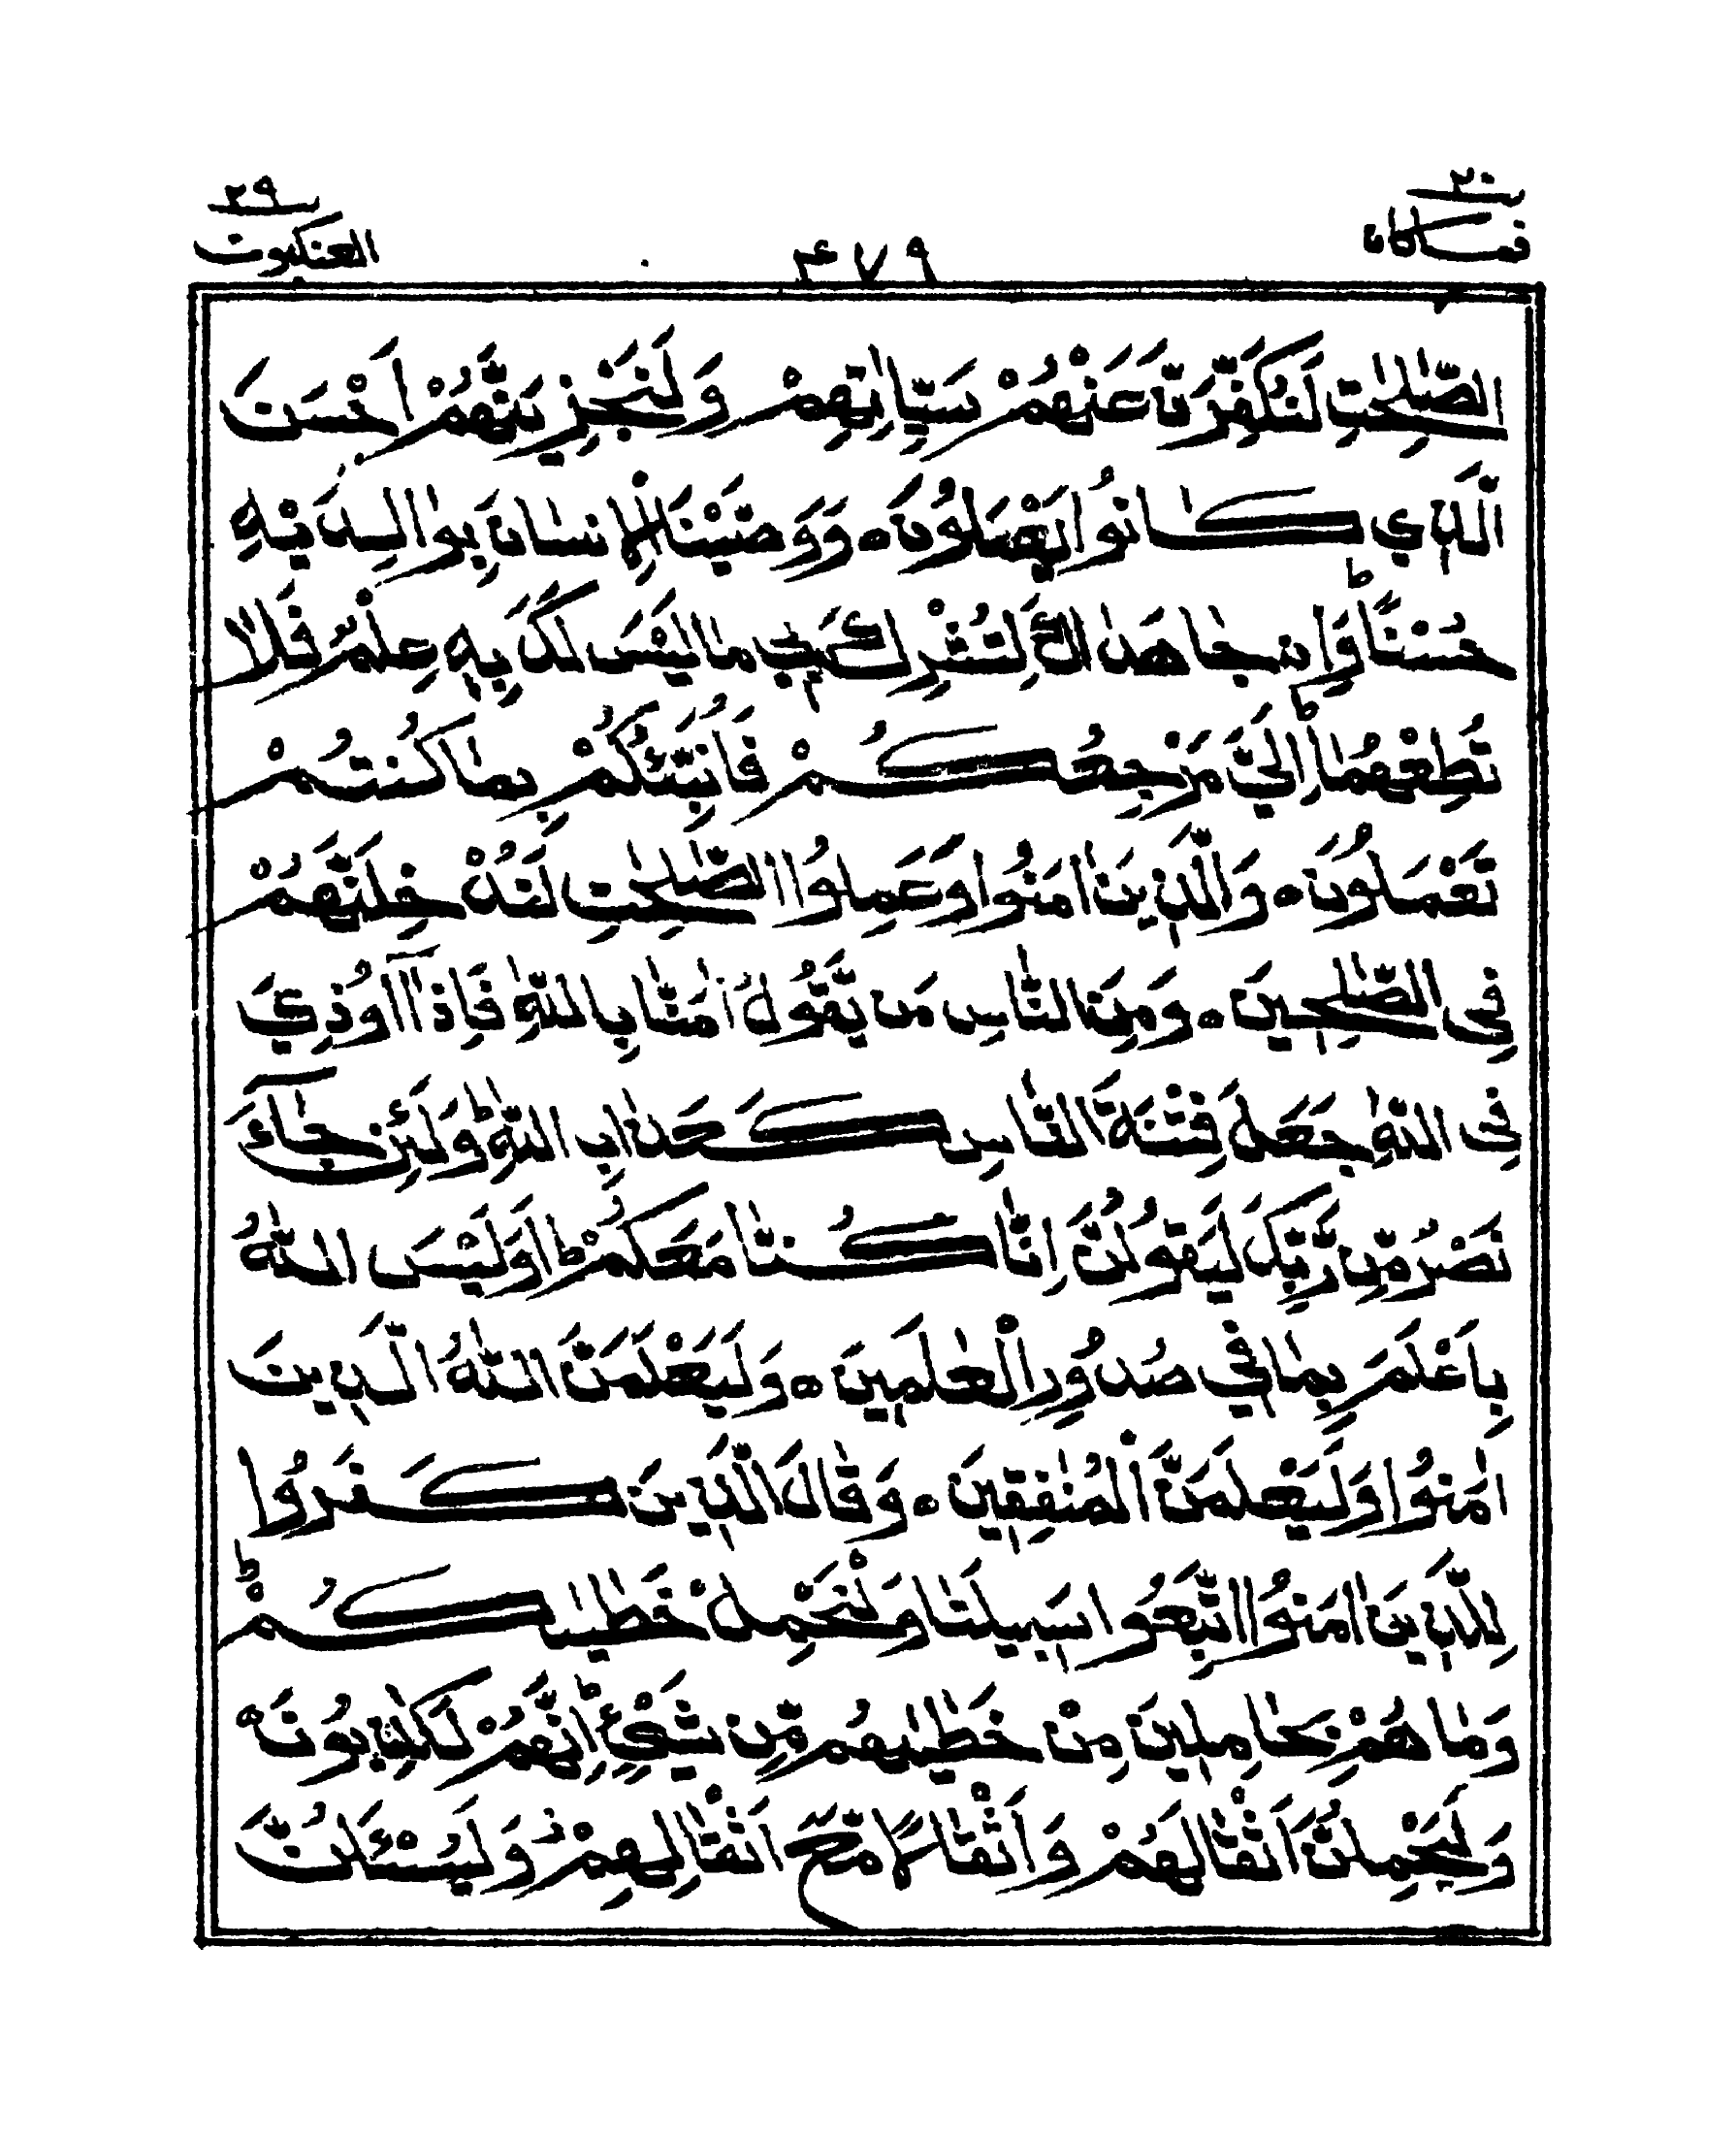 ٢٠
فما كان
٤٧٩
٢٩
العنكبوت
الصّٰلِحٰتِ لَنُكَفِّرَنَّ عَنْهُمْ سَيِّاٰتِهِمْ وَلَنَجْزِيَنَّهُمْ اَحْسَنَ
الَّذِي كَانُوا يَعْمَلُونَ ○ وَوَصَّيْنَا الْاِنسَانَ بِوَالِدَيْهِ
حُسْنًا ؕ وَاِن جَاهَدٰكَ لِتُشْرِكَ بِي مَا لَيْسَ لَكَ بِهٖ عِلْمٌ فَلَا
تُطِعْهُمَا ؕ اِلَيَّ مَرْجِعُكُمْ فَاُنَبِّئُكُمْ بِمَا كُنتُمْ
تَعْمَلُونَ ○ وَالَّذِينَ اٰمَنُوا وَعَمِلُوا الصّٰلِحٰتِ لَنُدْخِلَنَّهُمْ
فِى الصّٰلِحِينَ ○ وَمِنَ النَّاسِ مَن يَّقُولُ اٰمَنَّا بِاللّٰهِ فَاِذَآ اُوذِيَ
فِى اللّٰهِ جَعَلَ فِتْنَةَ النَّاسِ كَعَذَابِ اللّٰهِ ؕ وَلَئِن جَآءَ
نَصْرٌ مِّن رَّبِّكَ لَيَقُولُنَّ اِنَّا كُنَّا مَعَكُمْ ؕ اَوَلَيْسَ اللّٰهُ
بِاَعْلَمَ بِمَا فِي صُدُورِ الْعٰلَمِينَ ○ وَلَيَعْلَمَنَّ اللّٰهُ الَّذِينَ
اٰمَنُوا وَلَيَعْلَمَنَّ الْمُنٰفِقِينَ ○ وَقَالَ الَّذِينَ كَفَرُوا
لِلَّذِينَ اٰمَنُوا اتَّبِعُوا سَبِيلَنَا وَلْنَحْمِلْ خَطٰيٰكُمْ ؕ
وَمَا هُمْ بِحَامِلِينَ مِنْ خَطٰيٰهُم مِّن شَيْءٍ ؕ اِنَّهُمْ لَكٰذِبُونَ ○
وَلَيَحْمِلُنَّ اَثْقَالَهُمْ وَاَثْقَالًا مَّعَ اَثْقَالِهِمْ وَلَيُسْـَٔلُنَّ